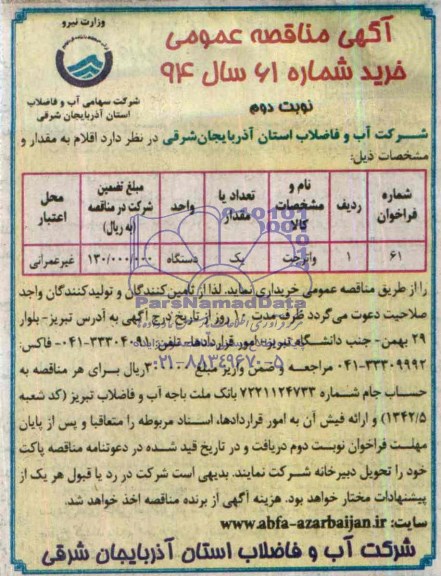 وزارت نیرو
شرکت سهامی آب و فاضلاب
استان آذربایجان شرقی
آگهی مناقصه عمومی
خرید شماره ۶۱ سال ۹۴
نوبت دوم
شرکت آب و فاضلاب استان آذربایجان‌شرقی در نظر دارد اقلام به مقدار و
مشخصات ذیل:
شماره فراخوان ردیف نام و مشخصات کالا تعداد یا مقدار واحد مبلغ تضمین شرکت در مناقصه (به ریال) محل اعتبار
۶۱ ۱ واترجت یک دستگاه ۱۳۰/۰۰۰/۰۰۰ غیرعمرانی
را از طریق مناقصه عمومی خریداری نماید. لذا از تامین‌کنندگان و تولیدکنندگان واجد
صلاحیت دعوت می‌گردد ظرف مدت ۱۰ روز از تاریخ درج آگهی به آدرس تبریز- بلوار
۲۹ بهمن- جنب دانشگاه تبریز- امور قراردادها- تلفن: ۳۳۳۰۴۰۹۱-۰۴۱ فاکس:
۳۳۳۰۹۹۹۲-۰۴۱ مراجعه و ضمن واریز مبلغ ریال برای هر مناقصه به
حساب جام شماره ۷۲۲۱۱۲۴۷۳۳ بانک ملت باجه آب و فاضلاب تبریز (کد شعبه
۱۳۴۲/۵) و ارائه فیش آن به امور قراردادها، اسناد مربوطه را متعاقبا و پس از پایان
مهلت فراخوان نوبت دوم دریافت و در تاریخ قید شده در دعوتنامه مناقصه پاکت
خود را تحویل دبیرخانه شرکت نمایند. بدیهی است شرکت در رد یا قبول هر یک از
پیشنهادات مختار خواهد بود. هزینه آگهی از برنده مناقصه اخذ خواهد شد.
سایت: www.abfa-azarbaijan.ir
شرکت آب و فاضلاب استان آذربایجان شرقی
ParsNamadData
۰۲۱-۸۸۳۴۹۶۷۰-۵